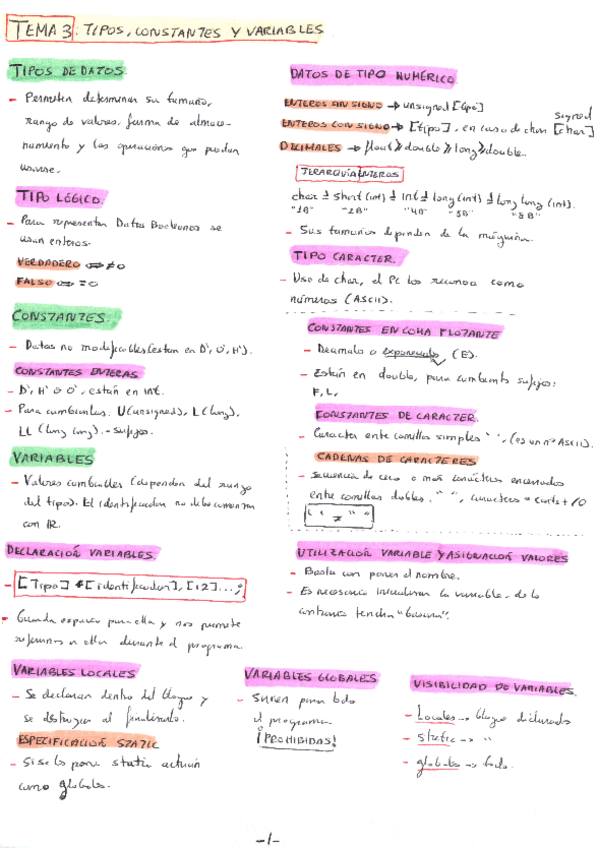 TEMA 3: TIPOS, CONSTANTES Y VARIABLES
TIPOS DE DATOS.
- Permiten determinar su tamaño,
rango de valores, forma de almace-
namiento y las operaciones que puedan
usarse.
TIPO LÓGICO.
- Para representar Datos Booleanos se
usan enteros.
VERDADERO ⇔ ≠0
FALSO ⇔ =0
DATOS DE TIPO NUMÉRICO
ENTEROS SIN SIGNO → unsigned [tipo]
ENTEROS CON SIGNO → [tipo], en caso de char signed [char]
DECIMALES → float ≫ double ≫ long ≫ double.
JERARQUÍA ENTEROS
char ≤ short (int) ≤ int ≤ long (int) ≤ long long (int).
"1B" "2B" "4B" "8B" "8B"
- Sus tamaños dependen de la máquina.
TIPO CARACTER.
- Uso de char, el PC los reconoce como
números (ASCII).
CONSTANTES.
- Datos no modificables (están en D', O', H').
CONSTANTES ENTERAS
- D', H' o O', están en int.
- Para cambiarlos: U (unsigned), L (long),
LL (long long). - sufijos.
CONSTANTES EN COMA FLOTANTE
- Decimales o exponenciales (E).
- Están en double, para cambiarlo sufijos:
F, L,
CONSTANTES DE CARACTER.
- Caracter entre comillas simples ' ', (es un nº ASCII).
CADENAS DE CARACTERES
- Secuencia de cero o más caracteres encerrados
entre comillas dobles. " ", caracteres = carts + /0
' ' ≠ " "
VARIABLES
- Valores cambiables (dependen del rango
del tipo). El identificador no debe comenzar
con
DECLARACIÓN VARIABLES.
- [Tipo] [identificador], [i2]...;
- Guarda espacio para ella y nos permite
referirnos a ella durante el programa.
UTILIZACIÓN VARIABLE Y ASIGNACIÓN VALORES
- Basta con poner el nombre.
- Es necesario inicializar la variable, de lo
contrario tendrá "basura".
VARIABLES LOCALES
- Se declaran dentro del bloque y
se destruyen al finalizarlo.
ESPECIFICACIÓN STATIC
- Si se le pone static actúan
como globales.
VARIABLES GLOBALES
- Sirven para todo
el programa.
¡PROHIBIDAS!
VISIBILIDAD DE VARIABLES.
- Locales → bloque declarado
- Static → "
- globales → todo.
-1-